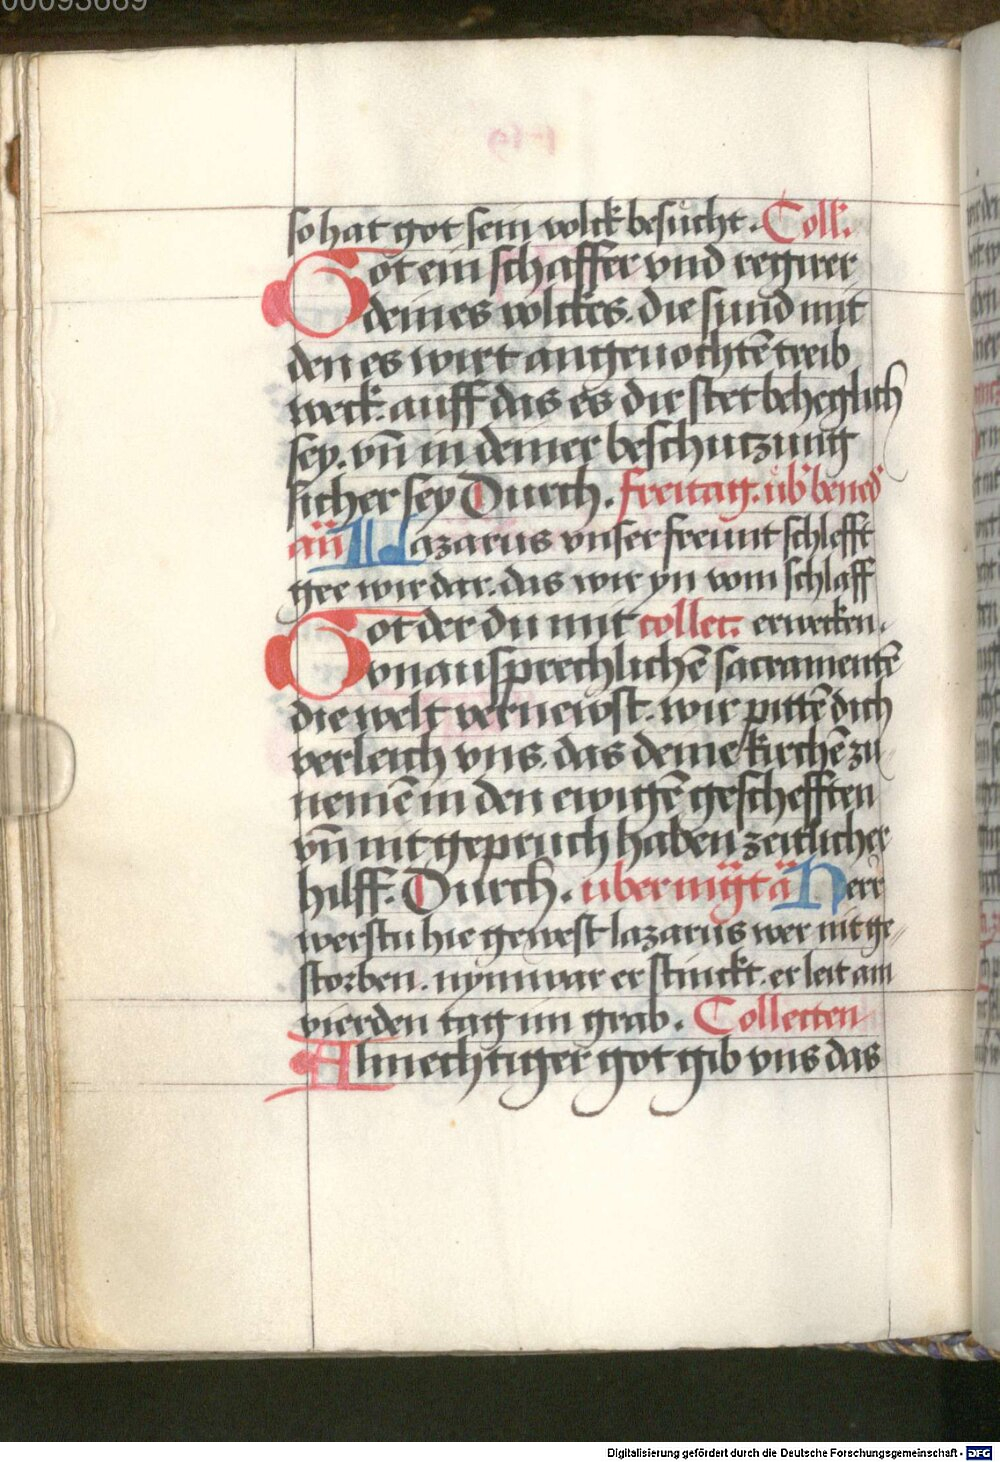 00093669
so hat got sein volck besucht. Coll'.
Got ein schaffer vnd regirer
deines volckes. die sund mit
den es wirt angeuochtē treib
weck. auff das es dir stet beheglich
sey. vn̄ in deiner beschutzung
sicher sey Durch. freitag. üb' bened'
an̄ Lazarus vnser freunt schlefft
gee wir dar. das wir yn vom schlaff
Got der du mit collet. erwecken.
vnausprechlichē sacramentē
die welt vernewst. wir pittē dich
verleich vns. das deine kirchē zu
nemē in den ewigē geschefften
vn̄ nit gepruch haben zeitlicher
hilff. Durch. uber mg̅t ā Herr
werstu hie gewest lazarus wer nit ge⸗
storben. nym war er stinckt. er leit am
vierden tag im grab. Collecten
Almechtiger got gib vns das
Digitalisierung gefördert durch die Deutsche Forschungsgemeinschaft - DFG